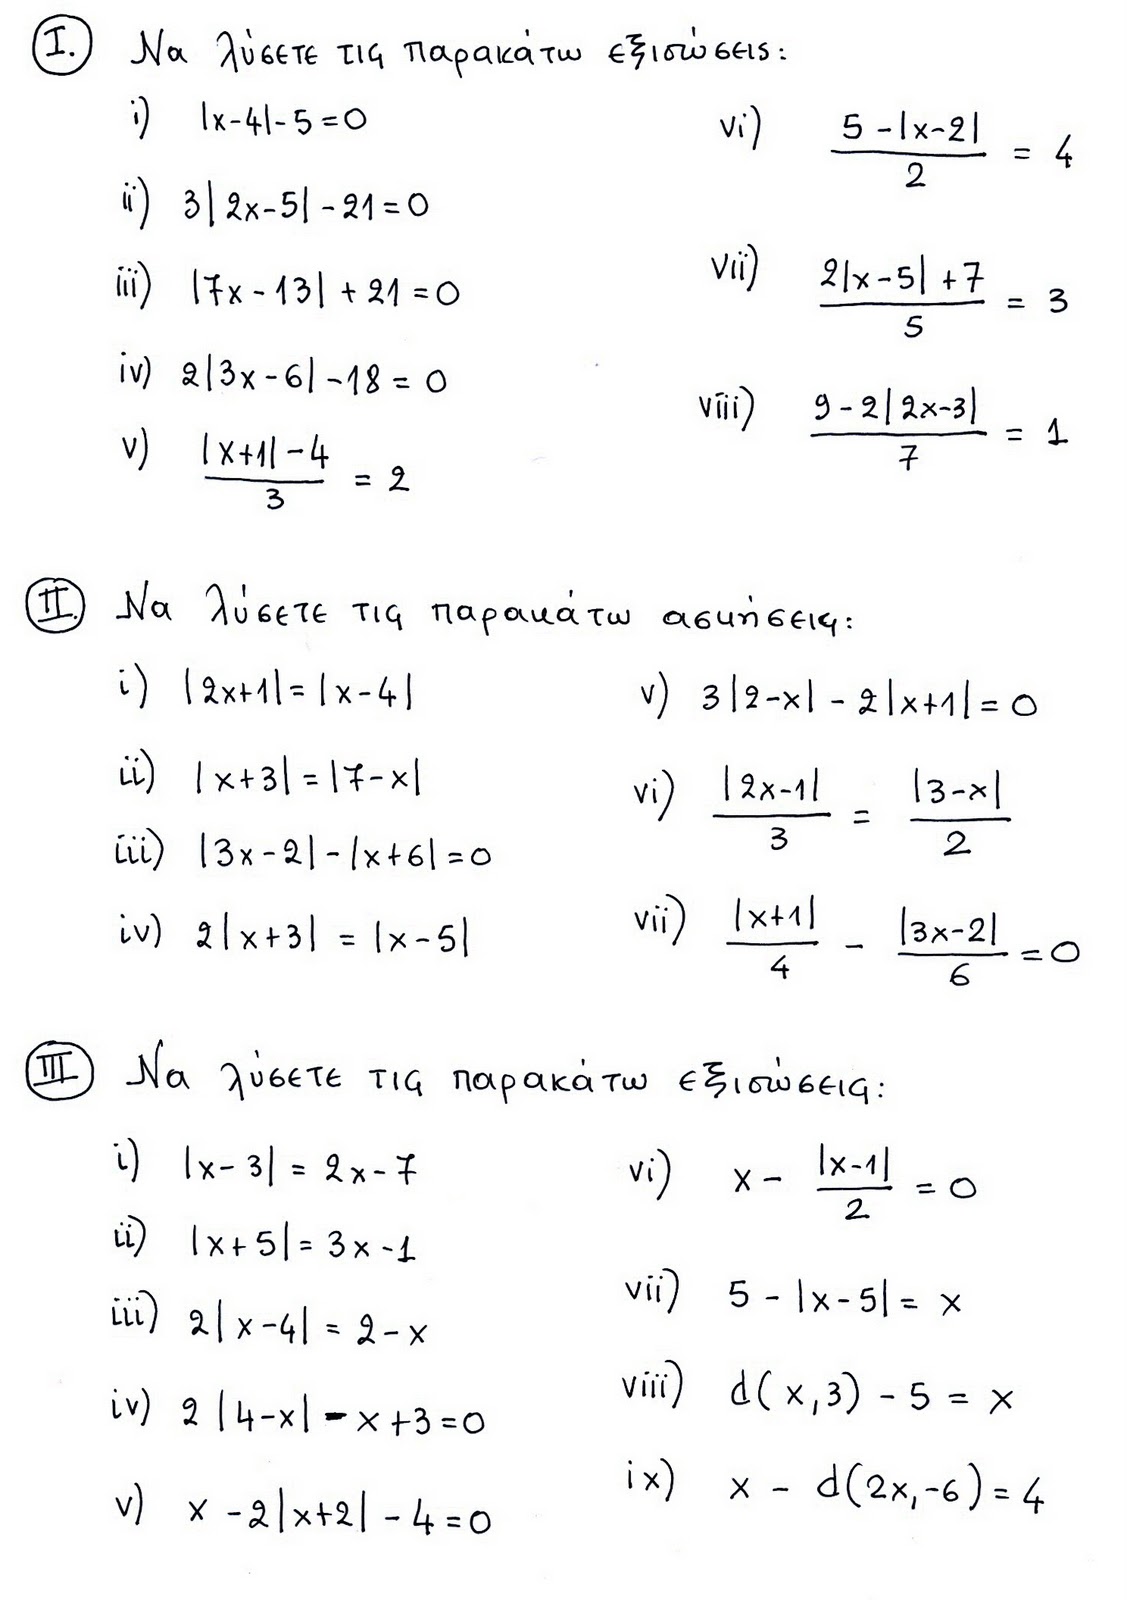 I. Να λύσετε τις παρακάτω εξισώσεις:
i) |x-4|-5=0
ii) 3|2x-5|-21=0
iii) |7x-13|+21=0
iv) 2|3x-6|-18=0
v) (|x+1|-4)/3 = 2
vi) (5-|x-2|)/2 = 4
vii) (2|x-5|+7)/5 = 3
viii) (9-2|2x-3|)/7 = 1
II. Να λύσετε τις παρακάτω ασκήσεις:
i) |2x+1|=|x-4|
ii) |x+3|=|7-x|
iii) |3x-2|-|x+6|=0
iv) 2|x+3| = |x-5|
v) 3|2-x| - 2|x+1|=0
vi) |2x-1|/3 = |3-x|/2
vii) |x+1|/4 - |3x-2|/6 =0
III. Να λύσετε τις παρακάτω εξισώσεις:
i) |x-3| = 2x-7
ii) |x+5|= 3x-1
iii) 2|x-4| = 2-x
iv) 2|4-x| - x+3=0
v) x-2|x+2| - 4=0
vi) x - |x-1|/2 = 0
vii) 5 - |x-5| = x
viii) d(x,3) - 5 = x
ix) x - d(2x,-6) = 4